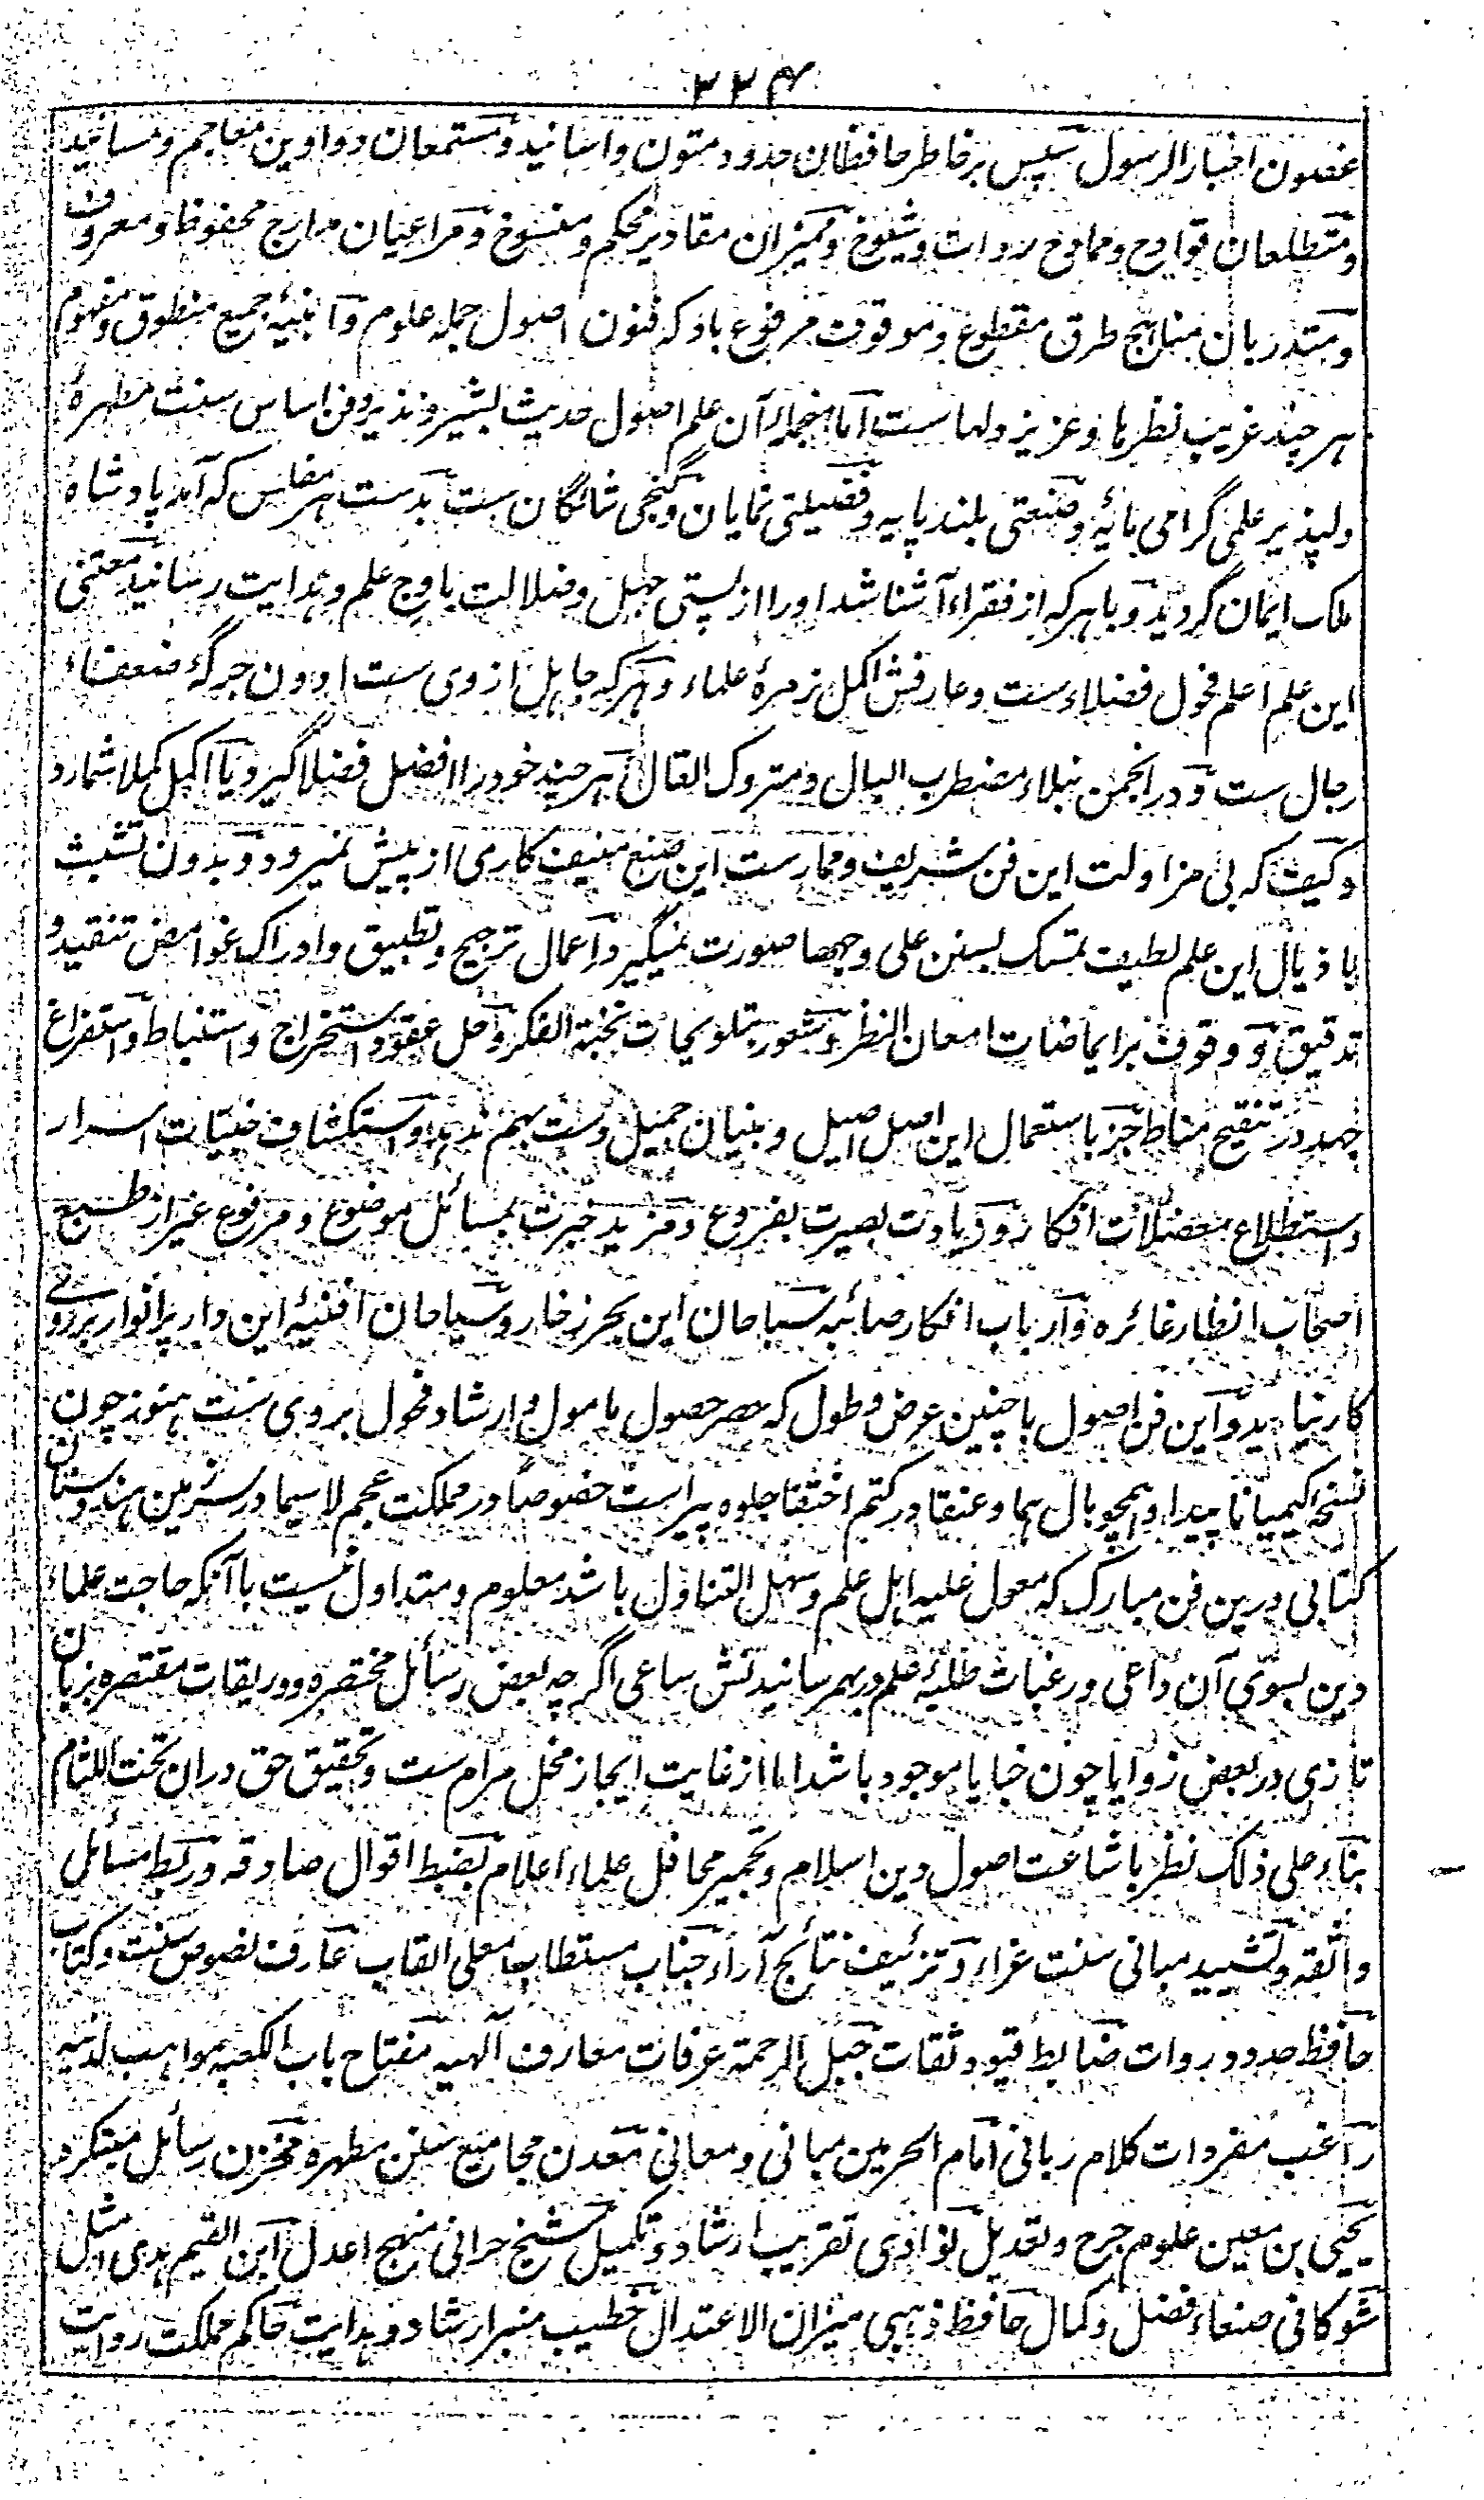 ۲۲۴
غصون اخبار الرسول سپس بر خاطر حافظان حدود متون و اسانید و مستمعان دواوین معاجم و مسانید
و متطلعان قوادح و ممادح روات و شیوخ و ممیزان مقادیر محکم و منسوخ و مراعیان مدارج محفوظ و معروف
و متدربان مناهج طرق مقطوع و موقوف مرفوع باد که فنون اصول جمله علوم و ابنیه جمیع منطوق و مفهوم
هر چند غریب نظرها و عزیز دلهاست اما ازانجمله آن علم اصول حدیث بشیر و نذیر و فن اساس سنت مطهرهٔ
دلپذیر علمی گرامی مایه و صنعتی بلند پایه و فضیلتی نمایان و گنجی شائگان ست بدست هر مفلس که آمد پادشاه
ملک ایمان گردید و با هر که از فقراء آشنا شد او را از پستی جهل و ضلالت باوج علم و هدایت رسانید معتنی
این علم اعلم فحول فضلاء ست و عارفش اکمل زمرهٔ علماء و هر که جاهل از وی ست ادون جرگهٔ ضعفاء
رجال ست و در انجمن نبلاء مضطرب البال و متروک القال هر چند خود را افضل فضلا گیرد یا اکمل کملا شمارد
و کیف که بی مزاولت این فن شریف و ممارست این صنع منیف کاری از پیش نمیرود و بدون تشبث
باذیال این علم لطیف تمسک بسنن علی وجهها صورت نمیگیرد اعمال ترجیح و تطبیق و ادراک غوامض تنقید و
تدقیق و وقوف بر ایماضات امعان النظر و شعور بتلویحات نخبة الفکر و حل عقود استخراج و استنباط و استفراغ
جهد در تنقیح مناط جز باستعمال این اصل اصیل و بنیان جمیل دست بهم ندهد و استکشاف خبیئات اسرار
و استطلاع معضلات افکار و زیادت بصیرت بفروع و مزید خبرت بمسائل موضوع و مرفوع غیر از طبع
اصحاب انظار غائره و ارباب افکار صائبه سباحان این بحر زخار و سیاحان افنیهٔ این دار پر انوار بر روے
کار نیاید و این فن اصول با چنین عرض و طول که حصر حصول مامول و ارشاد فحول بر وی ست هنوز چون
نسخهٔ کیمیا ناپیدا و همچو بال هما و عنقا در کتم اختفا جلوه پیراست خصوصا در مملکت عجم لاسیما در سرزمین هندوستان
کتابی درین فن مبارک که معول علیه اهل علم و سهل التناول باشد معلوم و متداول نیست با آنکه حاجت علماء
دین بسوی آن داعی و رغبات طلبهٔ علم در بهم رسانیدنش ساعی اگر چه بعض رسائل مختصره و وریقات مقتصره بزبان
تازی در بعض زوایا چون خبایا موجود باشد اما از غایت ایجاز مخل مرام ست و تحقیق حق دران تحت اللثام
بناء علی ذلک نظر باشاعت اصول دین اسلام و تجمیر محافل علماء اعلام بضبط اقوال صادقه و ربط مسائل
واثقه و تشیید مبانی سنت غراء و تزئیف نتائج آراء جناب مستطاب معلی القاب عارف نصوص سنت و کتاب
حافظ حدود روات ضابط قیود ثقات جبل الرحمة عرفات معارف آلهیه مفتاح باب الکعبه مواهب لدنیه
راغب مفردات کلام ربانی امام الحرمین مبانی و معانی معدن مجامیع سنن مطهره مخزن رسائل مبتکره
یحیی بن معین علوم جرح و تعدیل نواوی تقریب ارشاد و تکمیل شیخ حرانی منهج اعدل ابن القیم هدی امثل
شوکانی صنعاء فضل و کمال حافظ ذهبی میزان الاعتدال خطیب منبر ارشاد و هدایت حاکم مملکت روایت